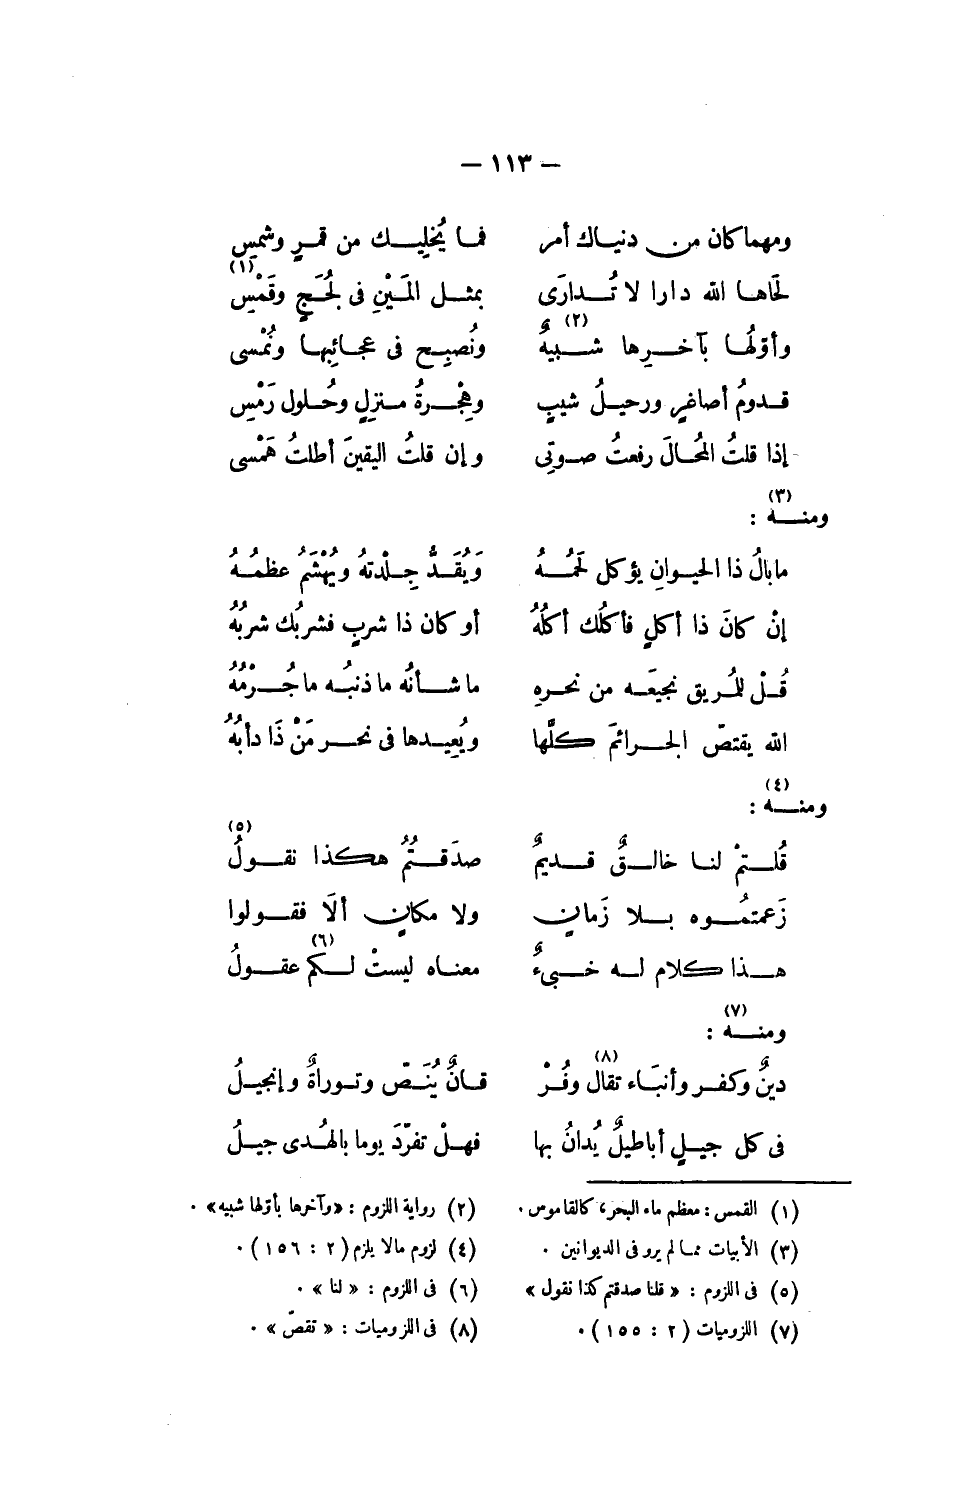 — ١١٣ —
ومهما كان من دنياك أمر فما يُخليك من قمرٍ وشمسِ
لحَاها الله دارا لا تُدارَى بمثل المَيْنِ فى لُججٍ وقَمْسِ (١)
وأوّلُها بآخرِها شبيهٌ (٢) ونُصبِح فى عجائبِها ونُمْسى
قدومُ أصاغرٍ ورحيلُ شيبٍ وهِجْرةُ منزلٍ وحُلول رَمْسِ
إذا قلتُ المُحالَ رفعتُ صوتِى وإن قلتُ اليقينَ أطلتُ هَمْسى
ومنه (٣) :
ما بالُ ذا الحيوانِ يؤكل لحَمُهُ وَيُقَدُّ جِلْدتهُ ويُهْشَمُ عظمُهُ
إنْ كانَ ذا أكلٍ فأكلُك أكلُهُ أو كان ذا شربٍ فشربُك شربُهُ
قُلْ للمُريق نجيعَه من نحرِهِ ما شأنُه ما ذنبُه ما جُرمُهُ
الله يقتصّ الجرائمَ كلَّها ويُعِيدها فى نحر مَنْ ذَا دأبُهُ
ومنه (٤) :
قُلتمْ لنا خالقٌ قديمٌ صدَقتُمُ هكذا نقولُ (٥)
زَعمتمُوه بلا زَمانٍ ولا مكانٍ ألَا فقولوا
هذا كلام له خبىءٌ معناه ليستْ لكم (٦) عقولُ
ومنه (٧) :
دينٌ وكفر وأنبَاء تقال (٨) وفُرْ قانٌ يُنَصّ وتوراةٌ وإنجيلُ
فى كل جيلٍ أباطيلٌ يُدانُ بها فهلْ تفرّدَ يوما بالهُدى جيلُ
(١) القمس : معظم ماء البحر، كالقاموس .   (٢) رواية اللزوم : «وآخرها بأوّلها شبيه» .
(٣) الأبيات مما لم يرو فى الديوانين .   (٤) لزوم مالا يلزم (٢ : ١٥٦) .
(٥) فى اللزوم : « قلنا صدقتم كذا نقول »   (٦) فى اللزوم : « لنا » .
(٧) اللزوميات (٢ : ١٥٥) .   (٨) فى اللزوميات : « تقصّ » .